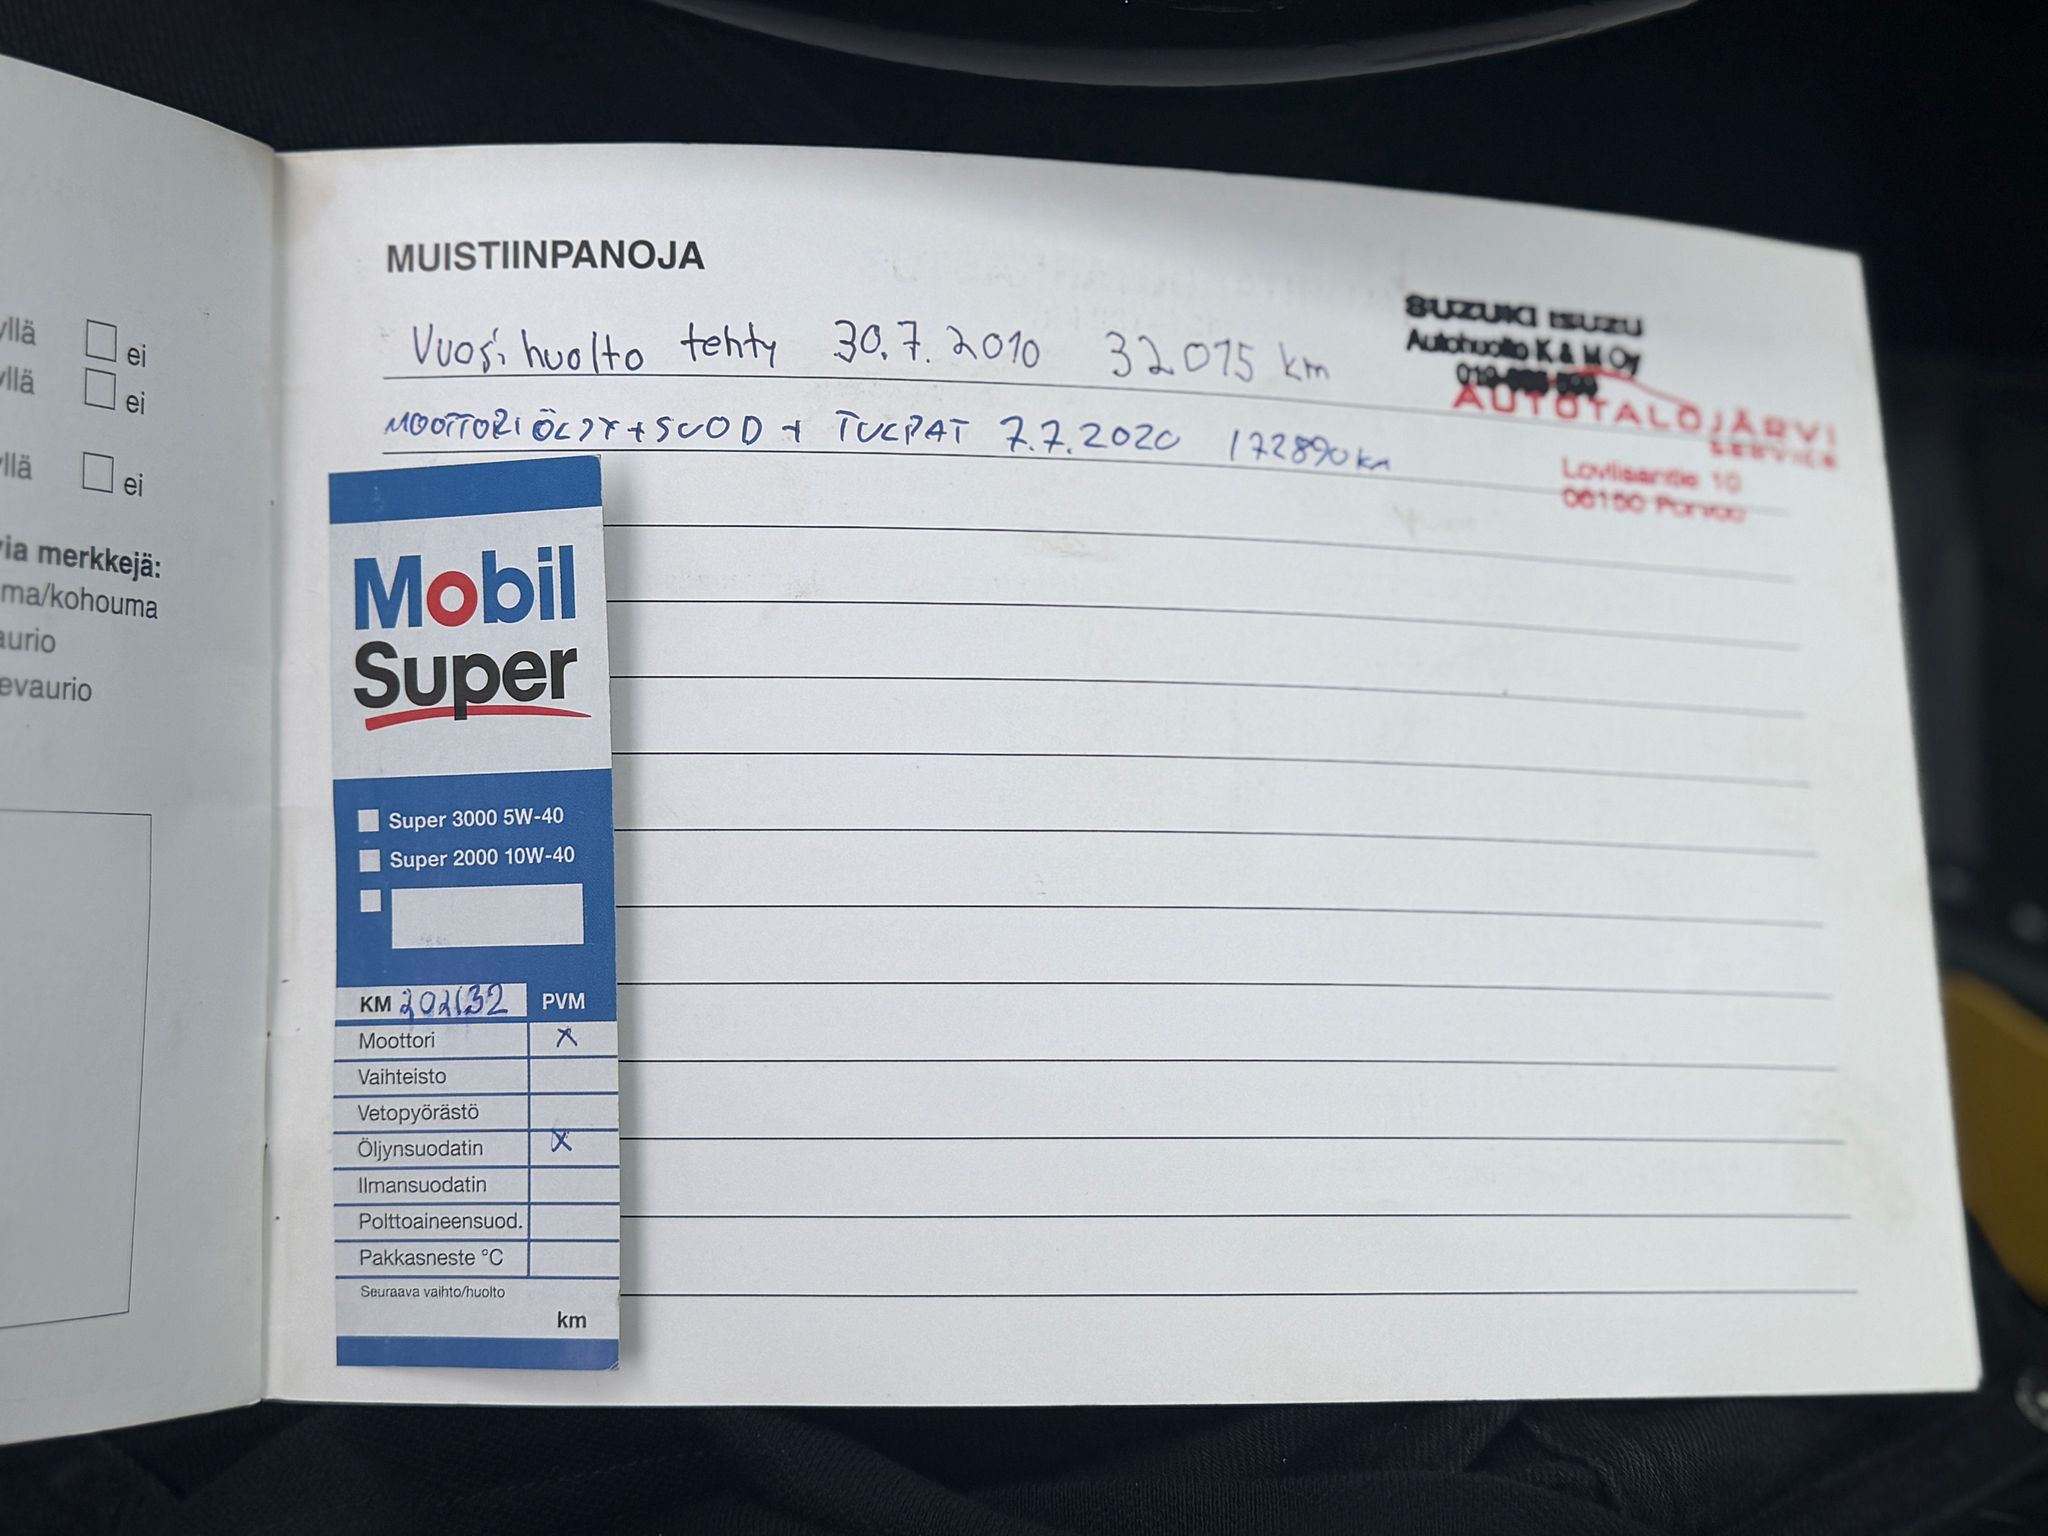 yllä ei
yllä ei
yllä ei
via merkkejä:
ma/kohouma
aurio
evaurio
MUISTIINPANOJA
Vuosihuolto tehty 30.7.2010 32075 km
MOOTTORIÖLJY + SUOD + TULPAT 7.7.2020 172890km
SUZUKI ISUZU
Autohuolto K & M Oy
AUTOTALOJÄRVI
SERVICE
Loviisantie 10
06150 Porvoo
Mobil
Super
Super 3000 5W-40
Super 2000 10W-40
KM 202132 PVM
Moottori X
Vaihteisto
Vetopyörästö
Öljynsuodatin X
Ilmansuodatin
Polttoaineensuod.
Pakkasneste °C
Seuraava vaihto/huolto
km